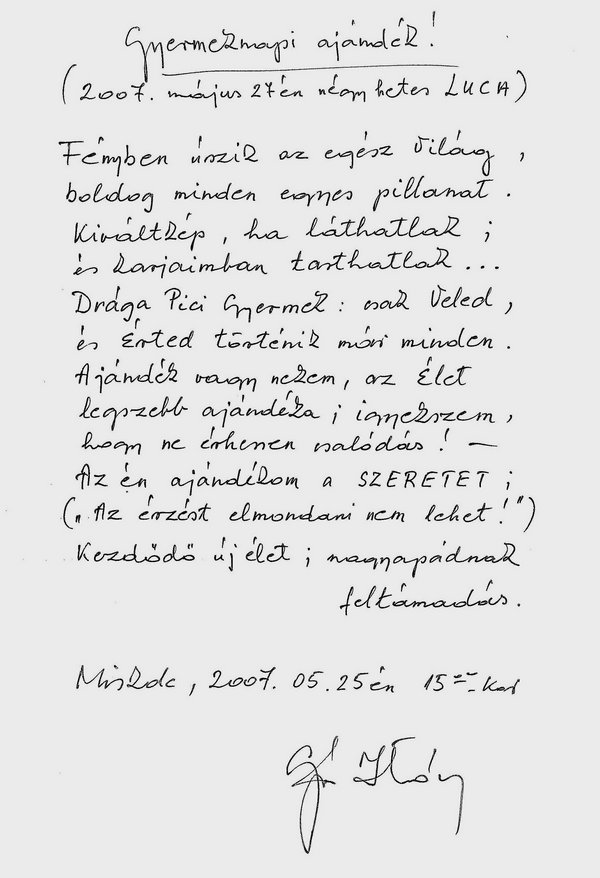 Gyermeknapi ajándék!
(2007. május 27én négy hetes LUCA)
Fényben úszik az egész Világ,
boldog minden egyes pillanat.
Kiváltkép, ha láthatlak;
és karjaimban tarthatlak...
Drága Pici Gyermek: csak Veled,
és Érted történik már minden.
Ajándék vagy nekem, az Élet
legszebb ajándéka; igyekszem,
hogy ne érhessen csalódás! —
Az én ajándékom a SZERETET;
(„Az érzést elmondani nem lehet!")
Kezdődő új élet; nagyapádnak
feltámadás.
Miskolc, 2007. 05. 25én 15 -kor
István